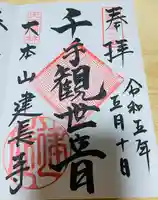 奉拝
令和五年
五月十日
千手観世音
大本山建長寺